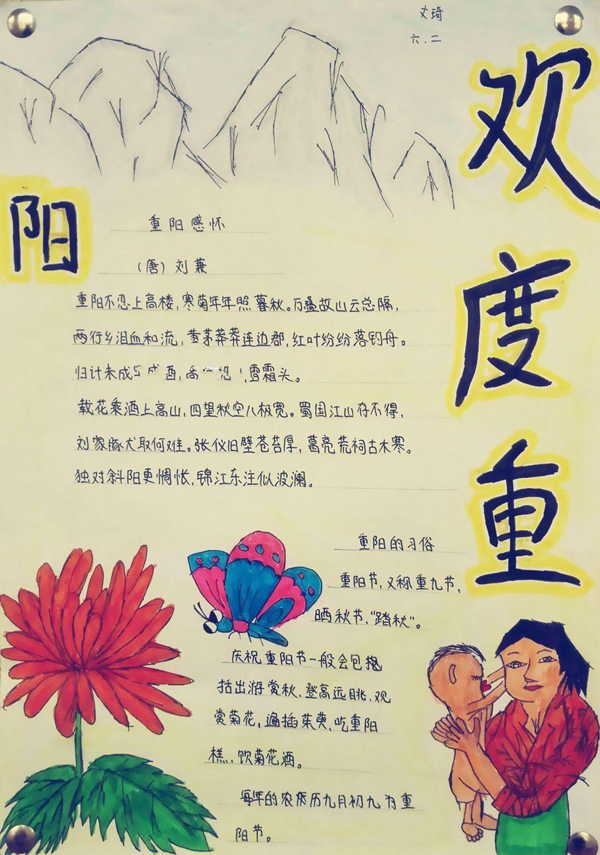 艾琦
六.二
欢度重
阳
重阳感怀
（唐）刘兼
重阳不忍上高楼，寒菊年年照暮秋。万叠故山云总隔，
两行乡泪血和流，黄茅莽莽连边郡，红叶纷纷落钓舟。
归计未成 酉， 雪霜头。
载花乘酒上高山，四望秋空八极宽。蜀国江山存不得，
刘家豚犬取何难。张仪旧壁苍苔厚，葛亮荒祠古木寒。
独对斜阳更惆怅，锦江东注似波澜。
重阳的习俗
重阳节，又称重九节，
晒秋节、“踏秋”。
庆祝重阳节一般会包
括出游赏秋、登高远眺、观
赏菊花，遍插茱萸、吃重阳
糕、饮菊花酒。
每年的农历九月初九为重
阳节。